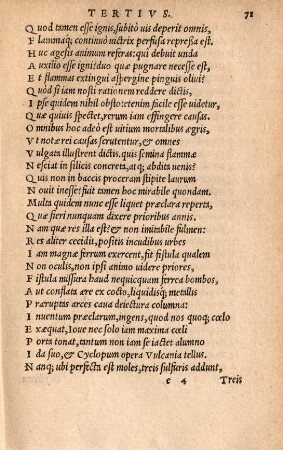 TERTIVS. 71
Quod tamen esse ignis, subitò uis deperit omnis,
Flammaq́; continuò uictrix perfusa repressa est.
Huc agesis animum referas: qui debuit unda
Auxilio esse ignis? duo quæ pugnare necesse est,
Et flammas extingui aspergine pinguis oliui?
Quòd si iam nosti rationem reddere dictis,
Ipse quidem nihil obsto: etenim facile esse uidetur,
Quæ quiuis spectet, rerum iam effingere causas.
Omnibus hoc adeò est uitium mortalibus ægris,
Vt notæ rei causas scrutentur, & omnes
Vulgata illustrent dictis. quis semina flammæ
Nesciat in silicis concreta, atq; abdita uenis?
Quis non in baccis proceram stipite laurum
Nouit inesse? fuit tamen hoc mirabile quondam.
Multa quidem nunc esse liquet præclara reperta,
Quæ fieri nunquam dixere prioribus annis.
Nam quæ res illa est? & non imitabile fulmen:
Res aliter cecidit, positis incudibus urbes
Iam magnæ ferrum exercent, fit fistula qualem
Non oculis, non ipsi animo uidere priores,
Fistula missura haud nequicquam ferrea bombos,
Aut conflata ære ex cocto, liquidisq́; metallis
Præruptas arces caua deiectura columna:
Inuentum præclarum, ingens, quod nos quoq; cœlo
Exæquat, Ioue nec solo iam maxima cœli
Porta tonat, tantum non iam se iactet alumno
Ida suo, & Cyclopum opera Vulcania tellus.
Nanq; ubi perfecta est moles, treis sulfuris addunt,
e 4 Treis